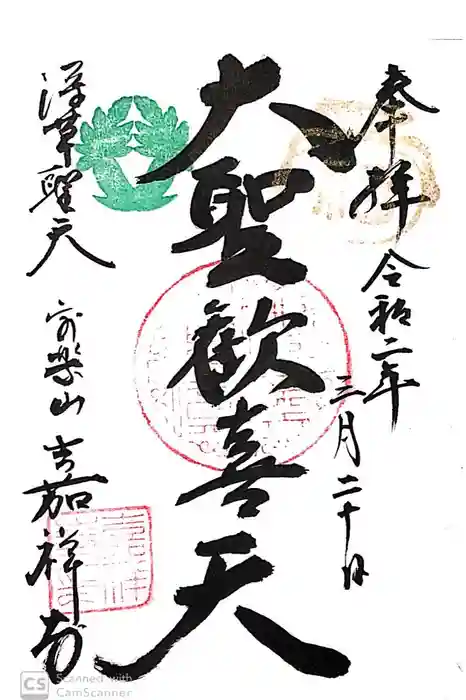 奉拝 令和二年
三月二十日
大聖歓喜天
深草聖天
安楽山 嘉祥寺
CS Scanned with
CamScanner